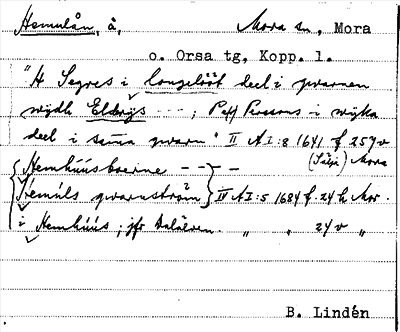 Hemulån, å, Mora sn, Mora
o. Orsa tg, Kopp. l.
"H Segres i Longelööt deel i qwarnen
wydh Elderijs ---; Pehr Perssons i wijka
deel i sama qwarn" II A I:8 1641 f 257v
(Sälje) Mora
Hemhúúsboerne --- -
Hemúls qwarnström II A I:5 1684 f. 24h Mor.
i Hemhúús; jfr Dalälven. " " 24v "
B. Lindén